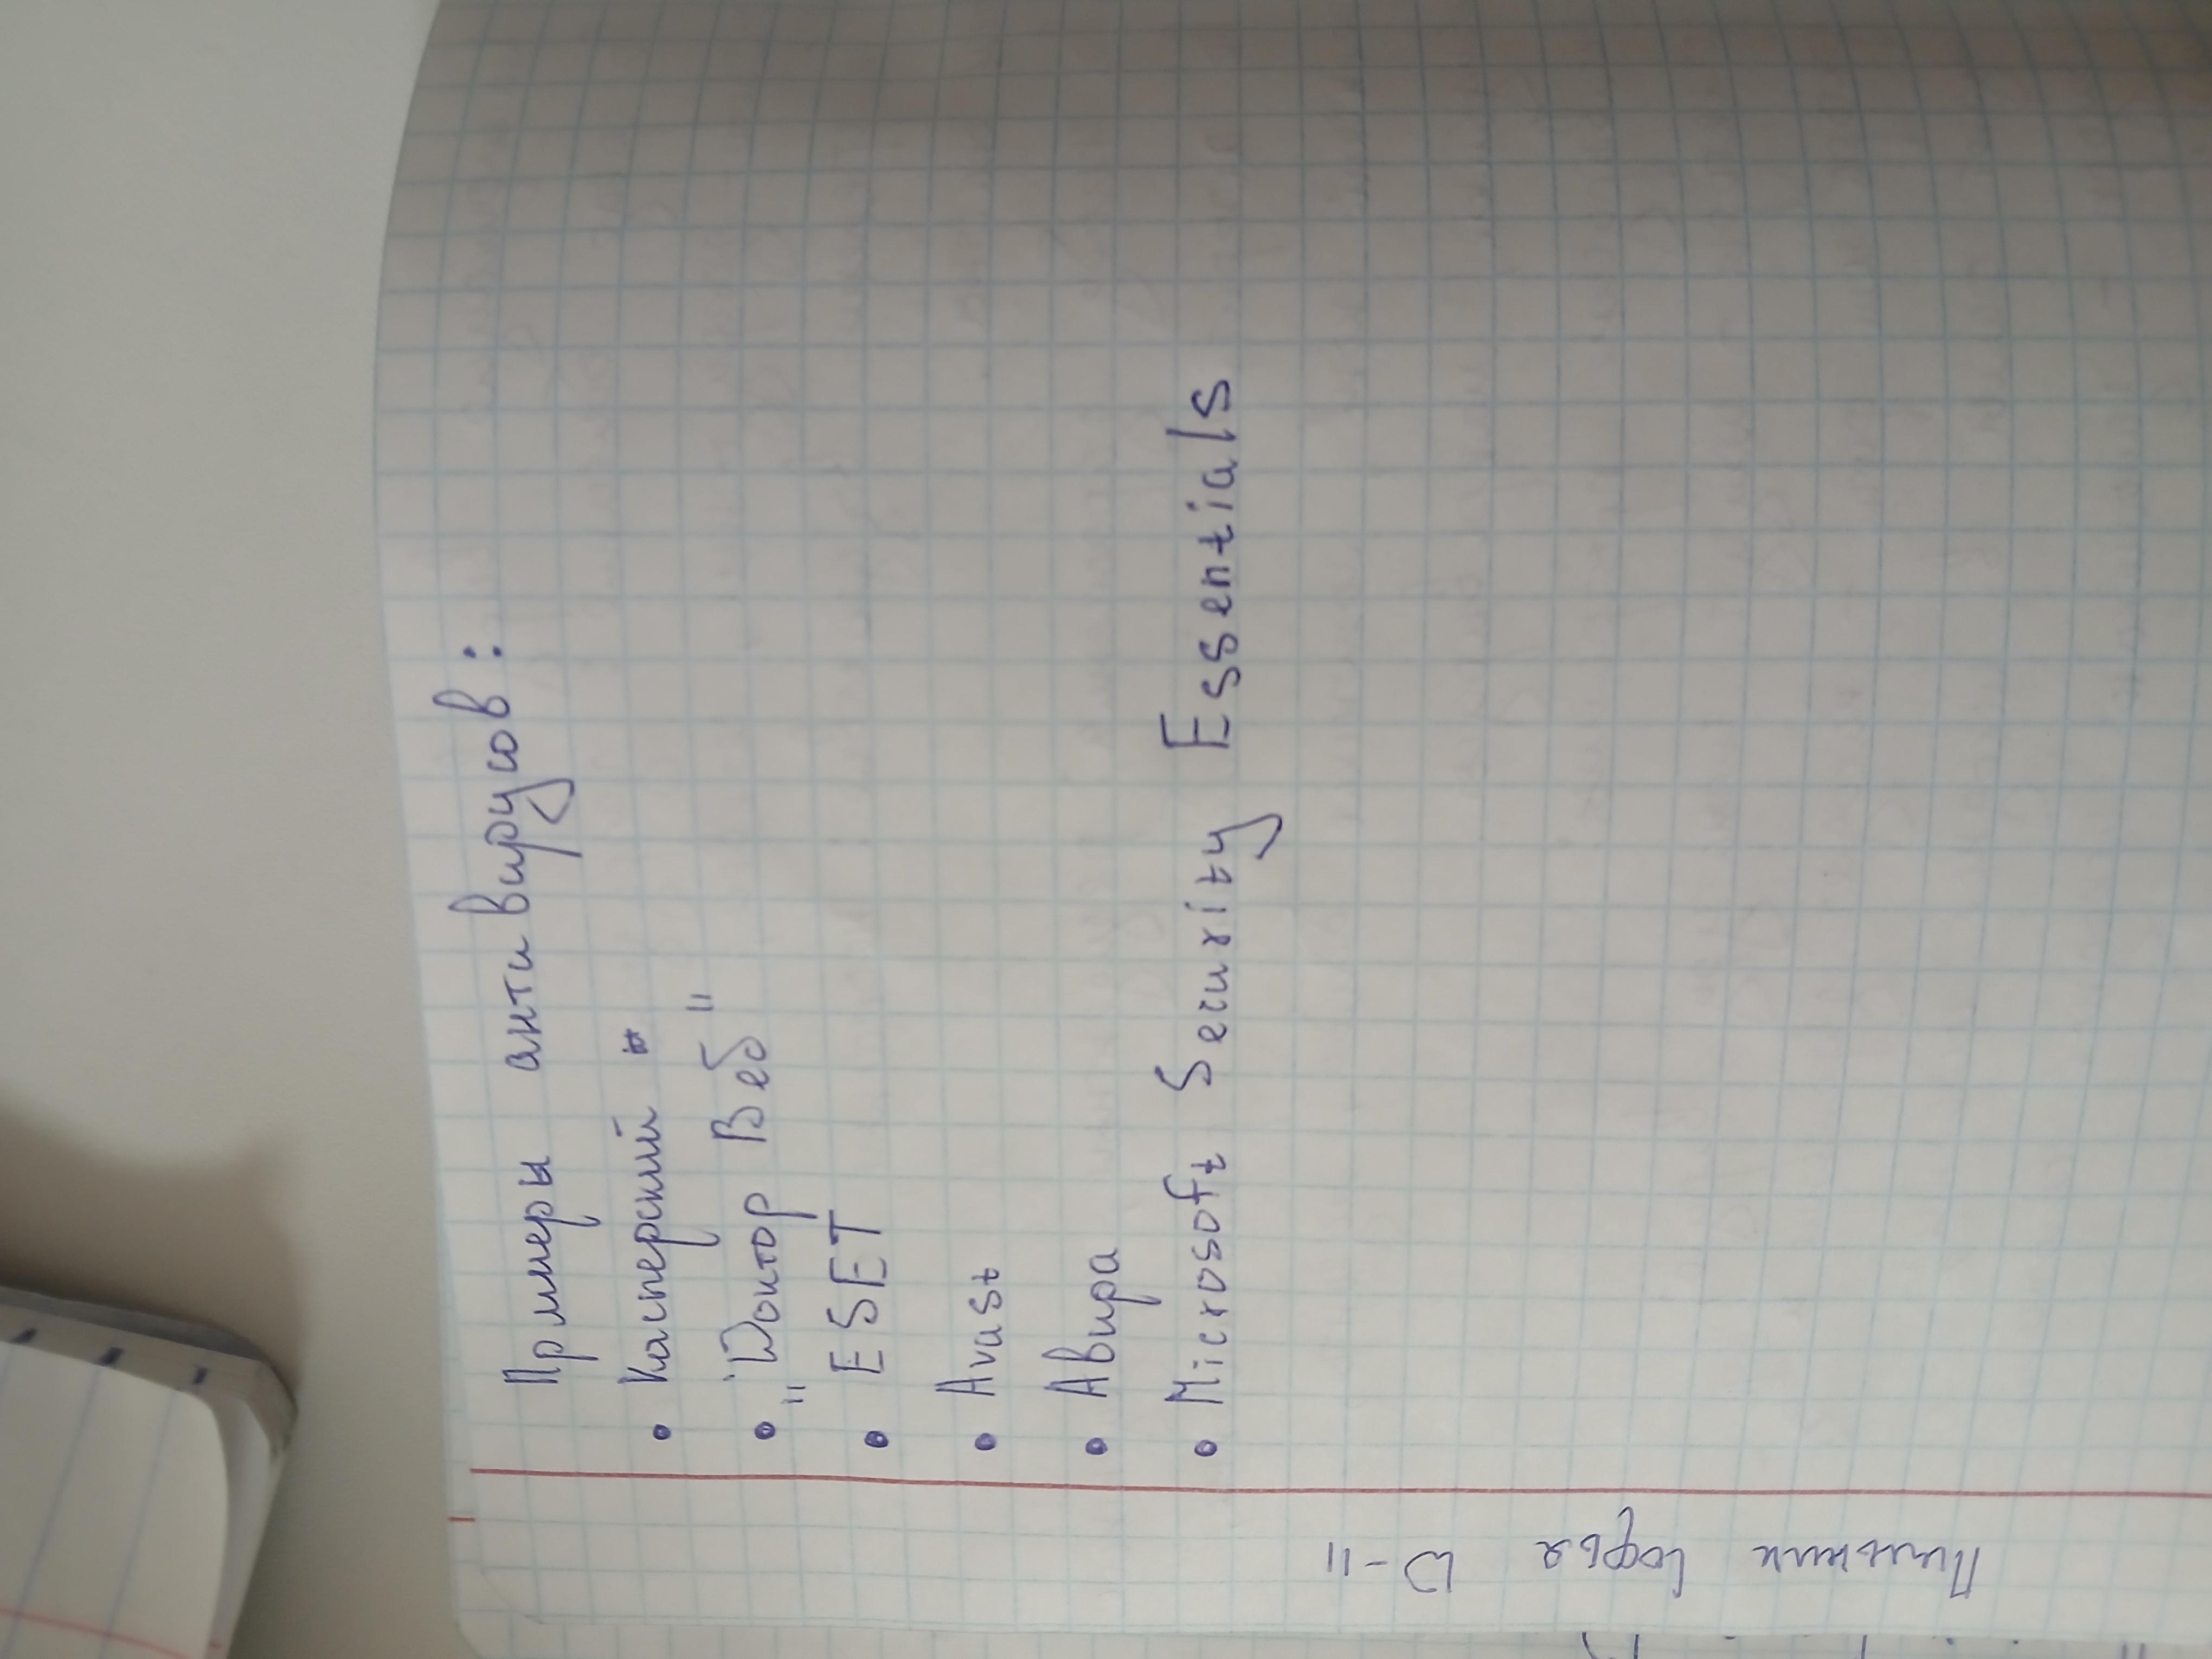 Примеры антивирусов:
• Касперский
• "Доктор Веб"
• ESET
• Avast
• Авира
• Microsoft Security Essentials
Софья